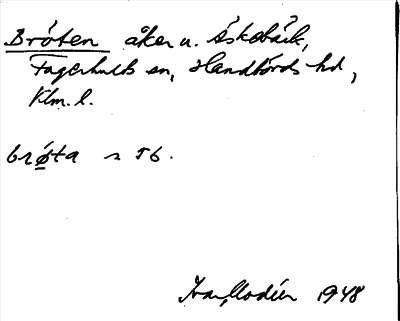 Bröten åker u. Äskebäck,
Fagerhults sn, Handbörds hd,
Klm. l.
brøta n 56.
Ivar Modéer 1948